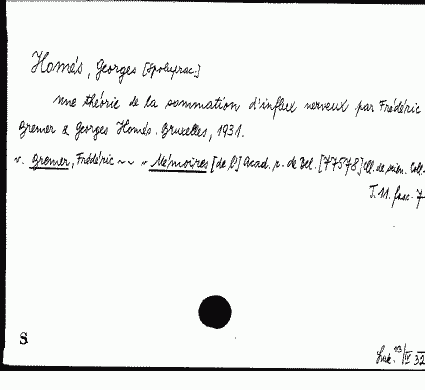 Homés, Georges [Spoluprac.]
Une théorie de la sommation d'influx nerveux par Frédéric
Bremer & Georges Homés. Bruxelles, 1931.
v. Bremer, Frédéric ~~ v Mémoires [de l'] Acad. r. de Bel. [77578] Cl. de scien. Coll.
T. 11. fasc. 7
S
13/IV 32